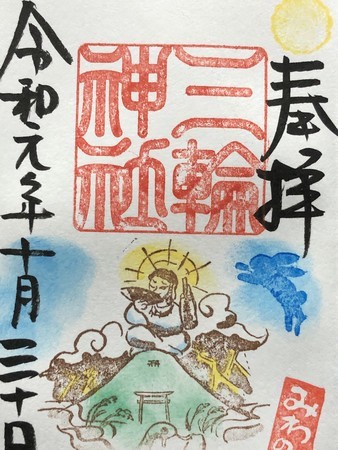 奉拝
三輪
神社
令和元年十月二十日
みわの